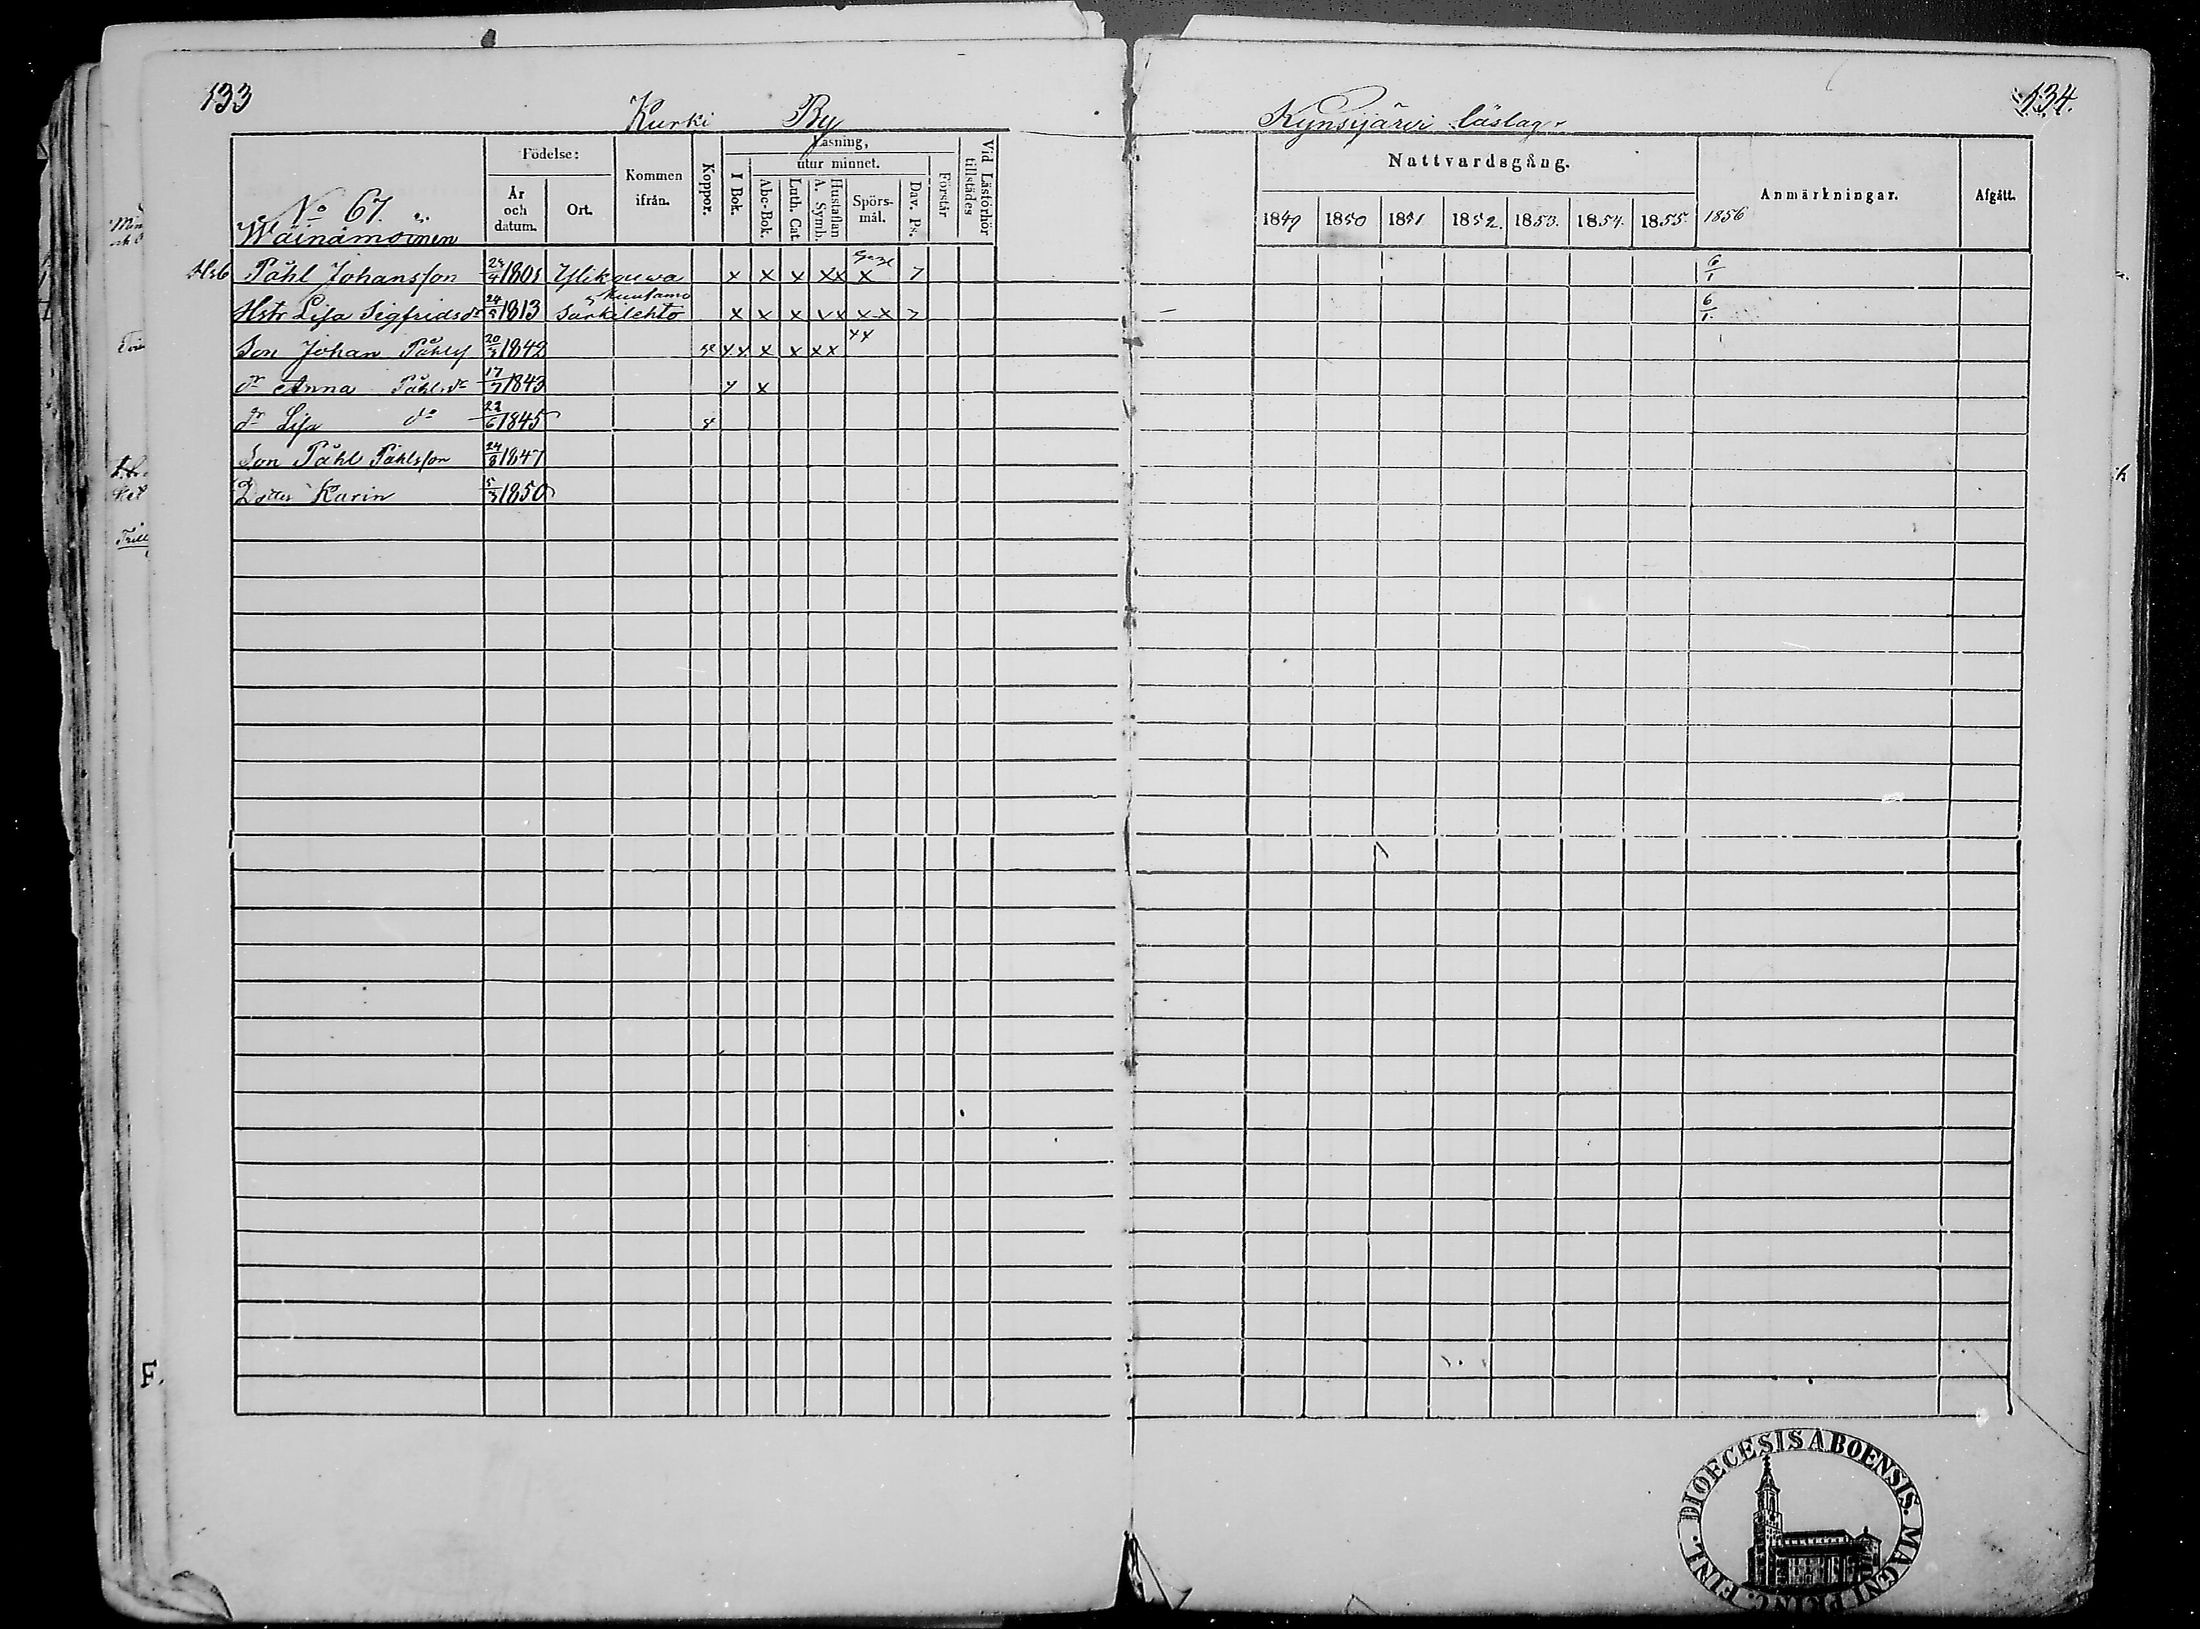 133
Kurki By
Kynsijärvi läslag
134.
Födelse:
Kommen ifrån.
Koppor.
Läsning,
I Bok.
utur minnet.
Abc-Bok.
Luth. Cat.
Hustaflan A. Symb.
Spörsmål.
Dav. Ps.
Förstår
Vid Läsförhör tillstädes
År och datum.
Ort.
Nattvardsgång.
1849 1850 1851 1852. 1853. 1854. 1855. 1856
Anmärkningar.
Afgått.
No 67.
Wäinämöinen
Påhl Johansson 1801 Ylikauwa x x x xx x 7 6/1
Kuusamo
Hstr Lisa Sigfridsdr 1813 Särkilehto x x x xx xx 7 6/1
Son Johan Påhls 20/3 1842 xx x x xx xx
dr Anna Påhlsdr 17/7 1843 x x
dr Lisa do 22/6 1845
Son Påhl Påhlsson 24/8 1847
Dotter Karin 5/3 1850
DIOECESIS ABOENSIS. MAGNI PRINC. FINL.